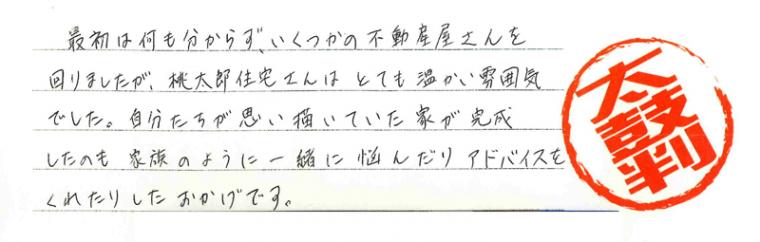 最初は何も分からず、いくつかの不動産屋さんを
回りましたが、桃太郎住宅さんは とても温かい雰囲気
でした。自分たちが思い描いていた家が完成
したのも 家族のように一緒に悩んだり アドバイスを
くれたりしたおかげです。
太鼓判